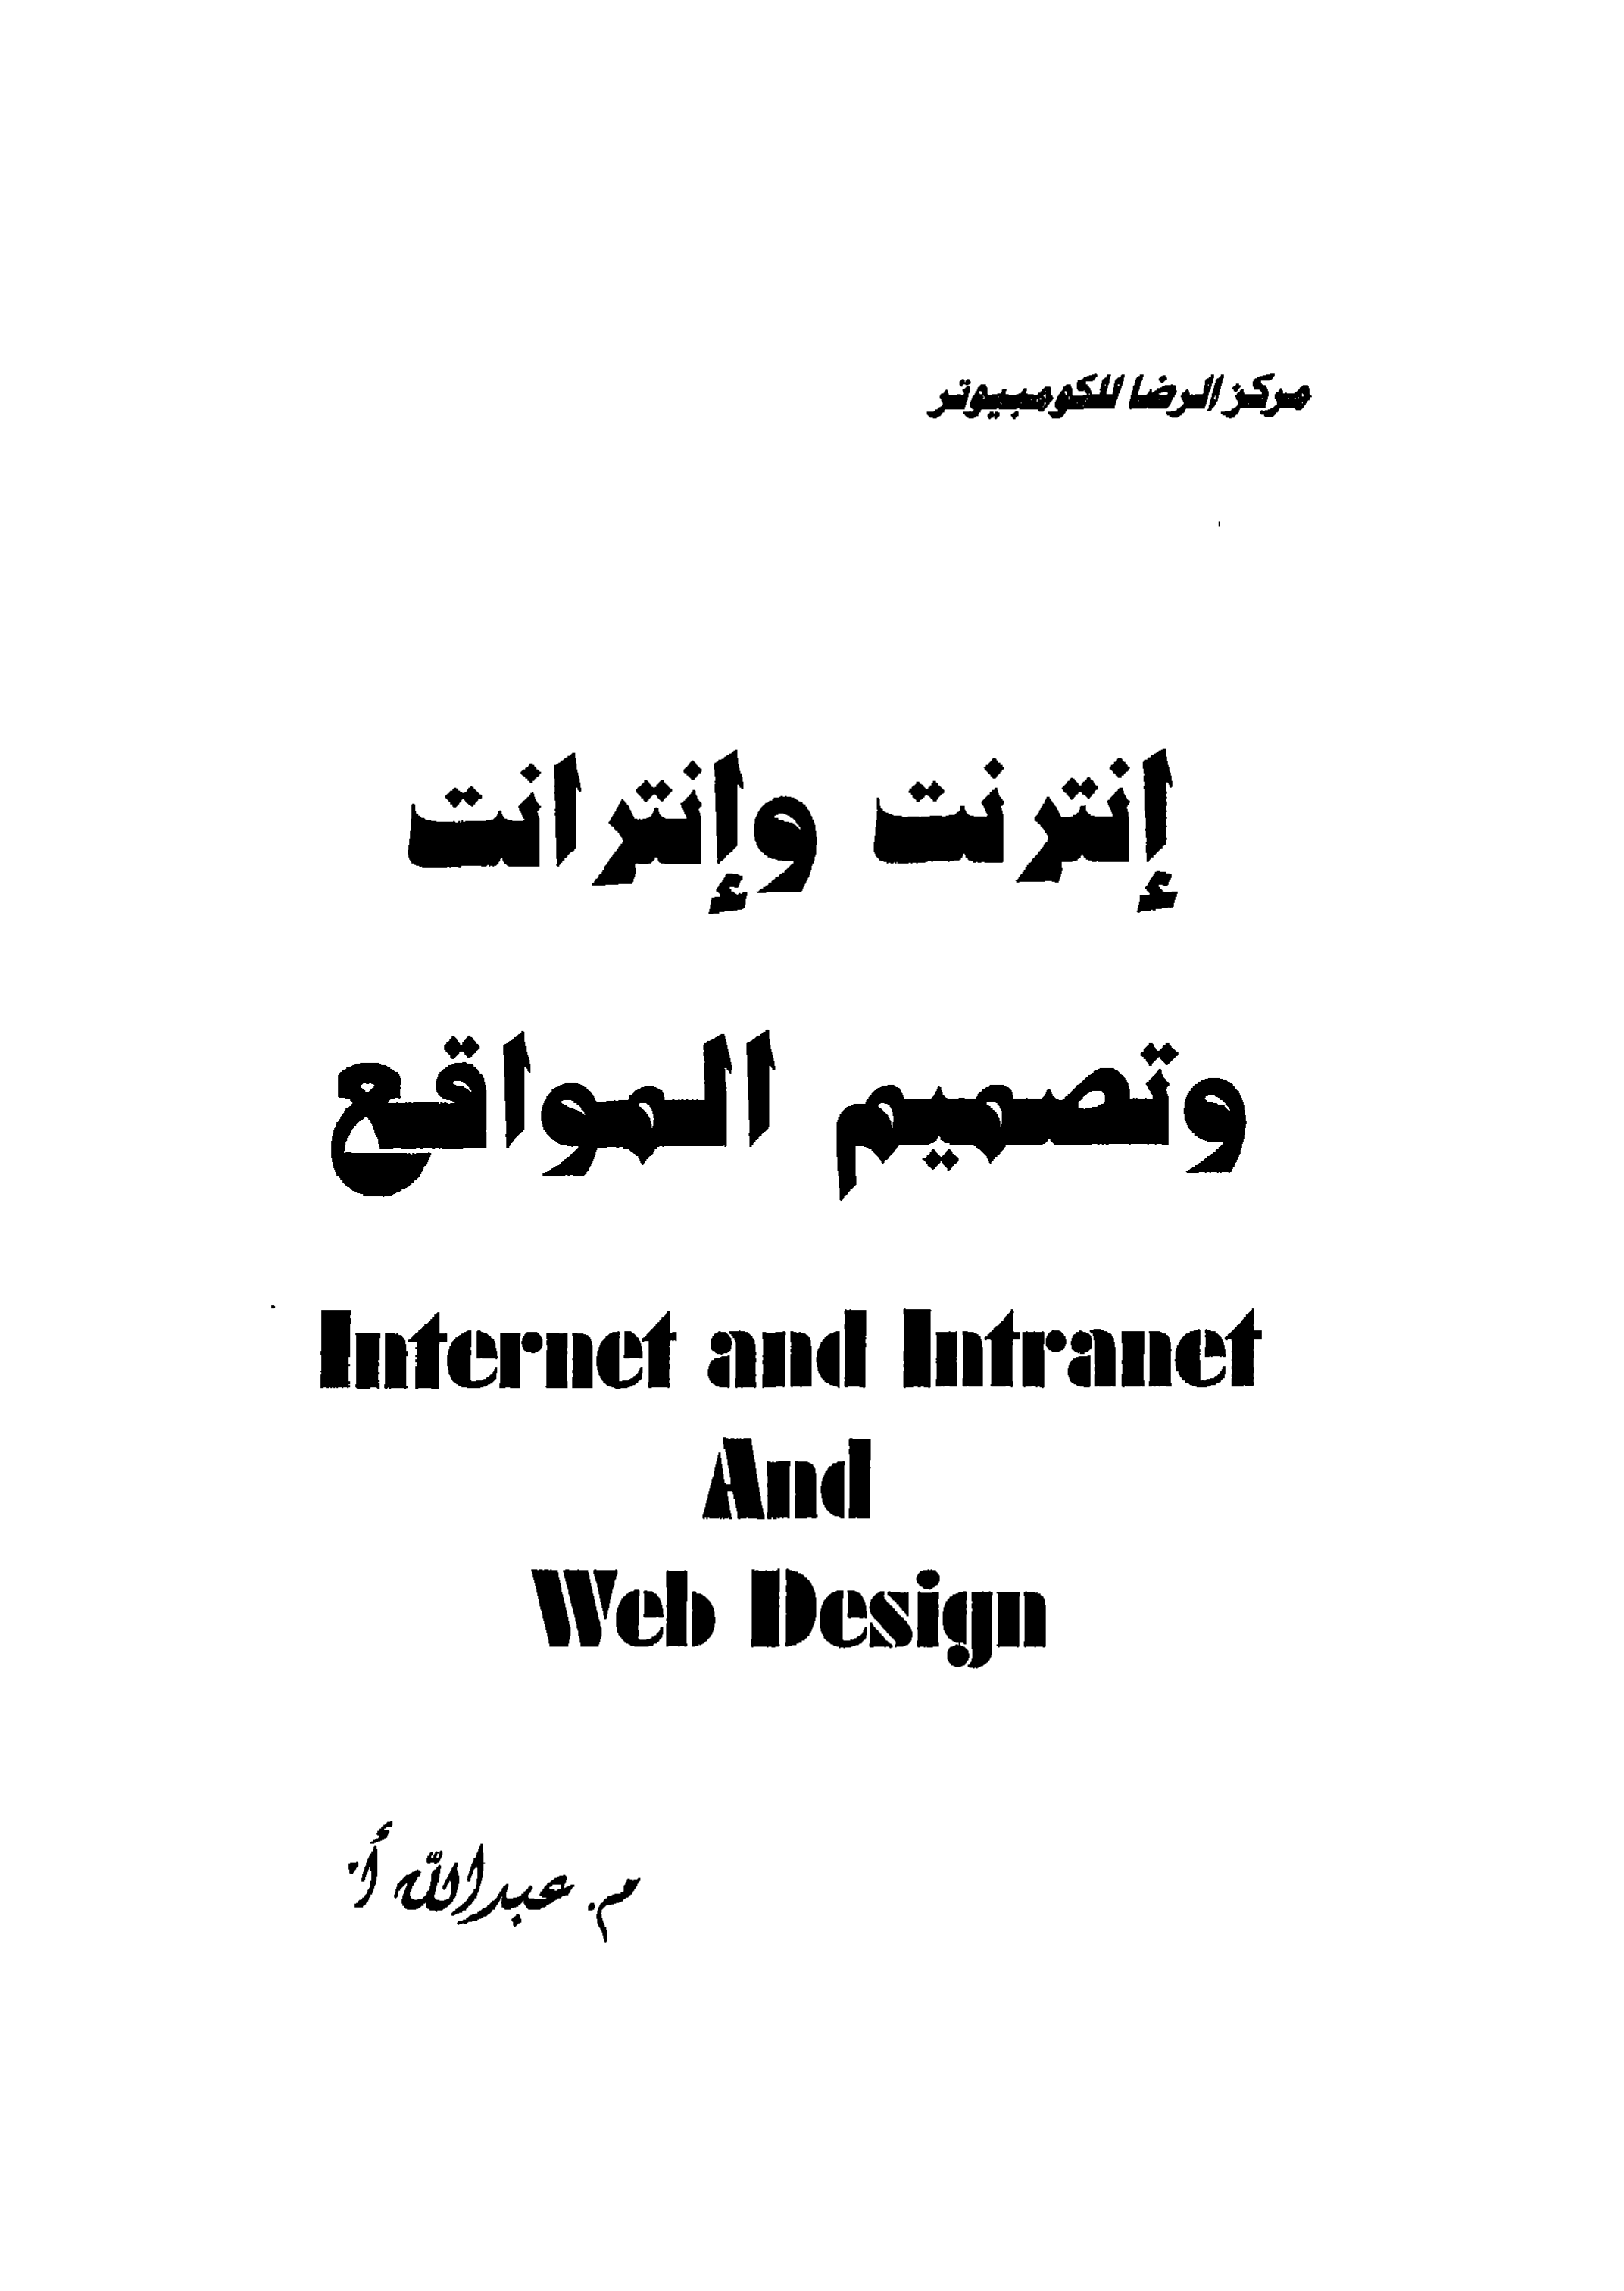 مركز الرضا للكومبيوتر
إنترنت وإنترانت
وتصميم المواقع
Internet and Intranet
And
Web Design
م. عبدالله